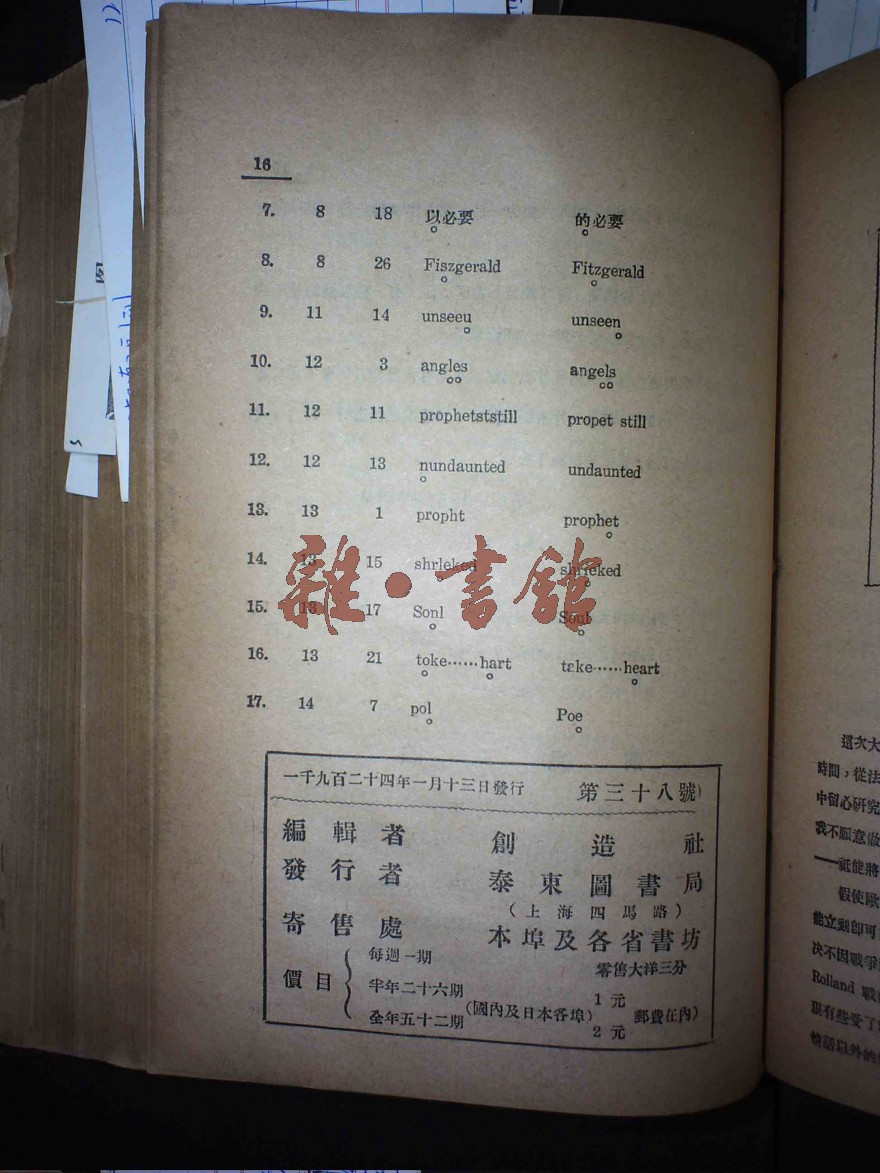 16
7. 8 18 以必要 的必要
8. 8 26 Fiszgerald Fitzgerald
9. 11 14 unseeu unseen
10. 12 3 angles angels
11. 12 11 prophetststill propet still
12. 12 13 nundaunted undaunted
13. 13 1 propht prophet
14. 13 15 shrleked shrieked
15. 13 17 Sonl Soub
16. 13 21 toke……hart take……heart
17. 14 7 pol Poe
雜·書館
一千九百二十四年一月十三日發行 第三十八號
編輯者 創造社
發行者 泰東圖書局
(上海四馬路)
寄售處 本埠及各省書坊
價目
每週一期 零售大洋三分
半年二十六期 1元
(國內及日本各埠) 郵費在內)
全年五十二期 2元
這次大
時間,從法
中留心研究
我不願意做
——祇能將
假使歐
能立刻卽可
決不因戰爭
Rolland 戰
班有些受了
情話以外的